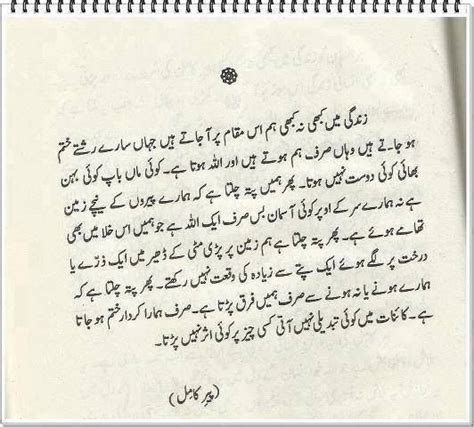 زندگی میں کبھی نہ کبھی ہم اس مقام پر آ جاتے ہیں جہاں سارے رشتے ختم
ہو جاتے ہیں وہاں صرف ہم ہوتے ہیں اور اللہ ہوتا ہے۔ کوئی ماں باپ کوئی بہن
بھائی کوئی دوست نہیں ہوتا۔ پھر ہمیں پتہ چلتا ہے کہ ہمارے پیروں کے نیچے زمین
ہے نہ ہمارے سر کے اوپر کوئی آسمان بس صرف ایک اللہ ہے جو ہمیں اس خلا میں بھی
تھامے ہوئے ہے۔ پھر پتہ چلتا ہے ہم زمین پر پڑی مٹی کے ڈھیر میں ایک ذرّے یا
درخت پر لگے ہوئے ایک پتے سے زیادہ کی وقعت نہیں رکھتے۔ پھر پتہ چلتا ہے کہ
ہمارے ہونے یا نہ ہونے سے صرف ہمیں فرق پڑتا ہے۔ صرف ہمارا کردار ختم ہو جاتا
ہے۔ کائنات میں کوئی تبدیلی نہیں آتی کسی چیز پر کوئی اثر نہیں پڑتا۔
(پیرِ کامِل)